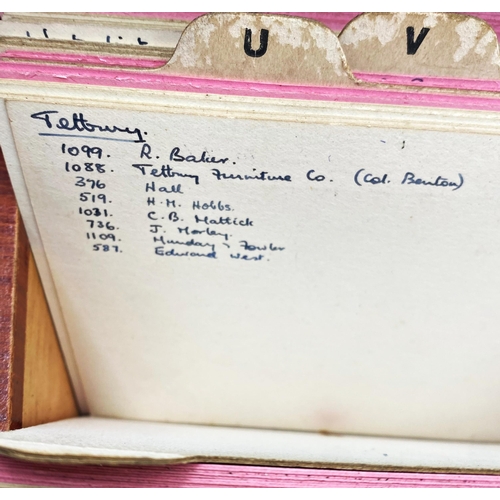 U
V
Tetbury.
1099. R. Baker.
1088. Tetbury Furniture Co. (Col. Benton)
376 Hall
519. H. M. Hobbs.
1031. C. B. Mattick
736. J. Morley.
1109. Munday & Fowler
587. Edward West.